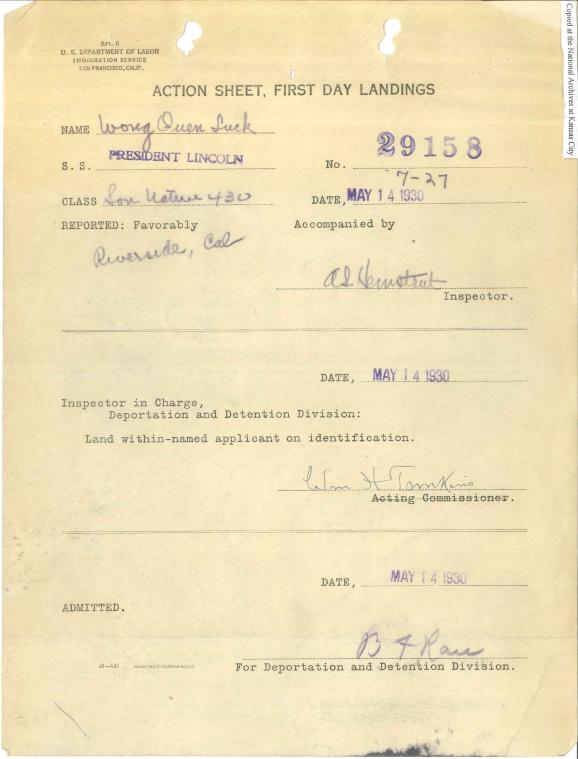 Copied at the National Archives at Kansas City
SPL. 6
U. S. DEPARTMENT OF LABOR
IMMIGRATION SERVICE
SAN FRANCISCO, CALIF.
ACTION SHEET, FIRST DAY LANDINGS
NAME Wong Quen Luck
S. S. PRESIDENT LINCOLN
No. 29158
7-27
CLASS Son Native 430
DATE, MAY 14 1930
REPORTED: Favorably
Accompanied by
Riverside, Cal
Inspector.
DATE, MAY 14 1930
Inspector in Charge,
Deportation and Detention Division:
Land within-named applicant on identification.
Wm H Tomkins
Acting Commissioner.
DATE, MAY 14 1930
ADMITTED.
For Deportation and Detention Division.